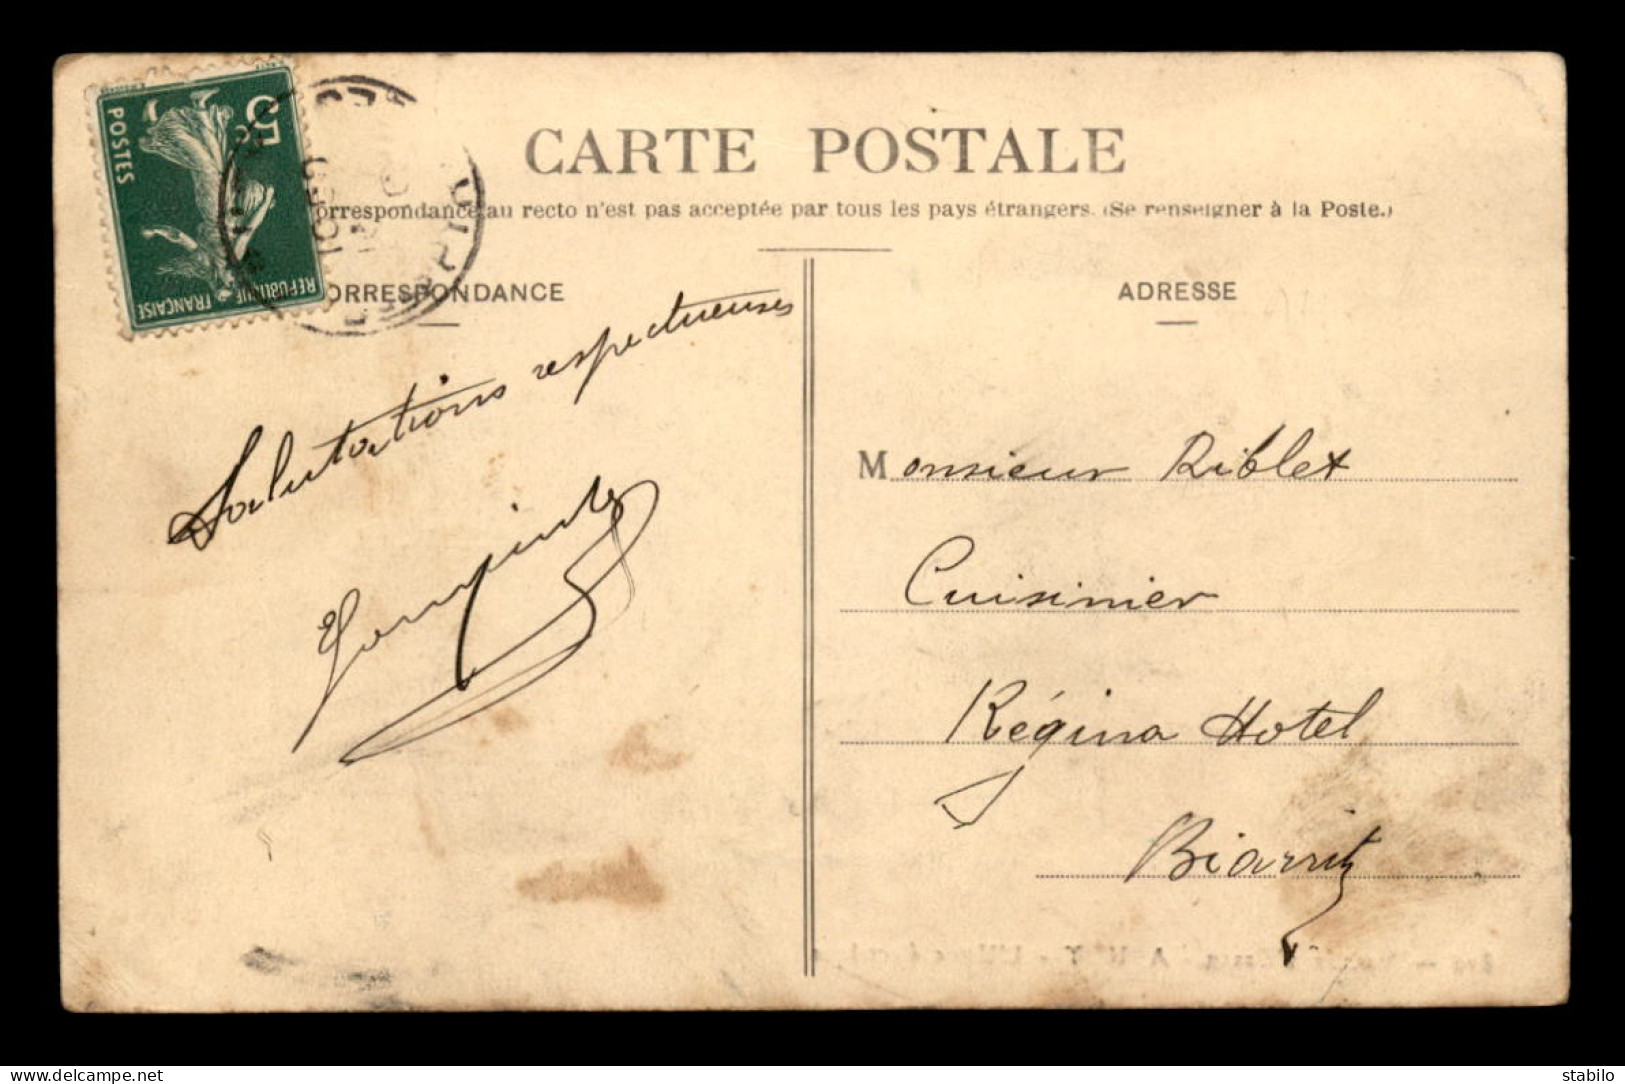 CARTE POSTALE
orrespondance au recto n'est pas acceptée par tous les pays étrangers. (Se renseigner à la Poste.)
5
POSTES
REPUBLIQUE
FRANÇAISE
ORRESPONDANCE
Salutations respectueuses
ADRESSE
Monsieur Riblet
Cuisinier
Régina Hotel
Biarritz
delcampe.net
stabilo